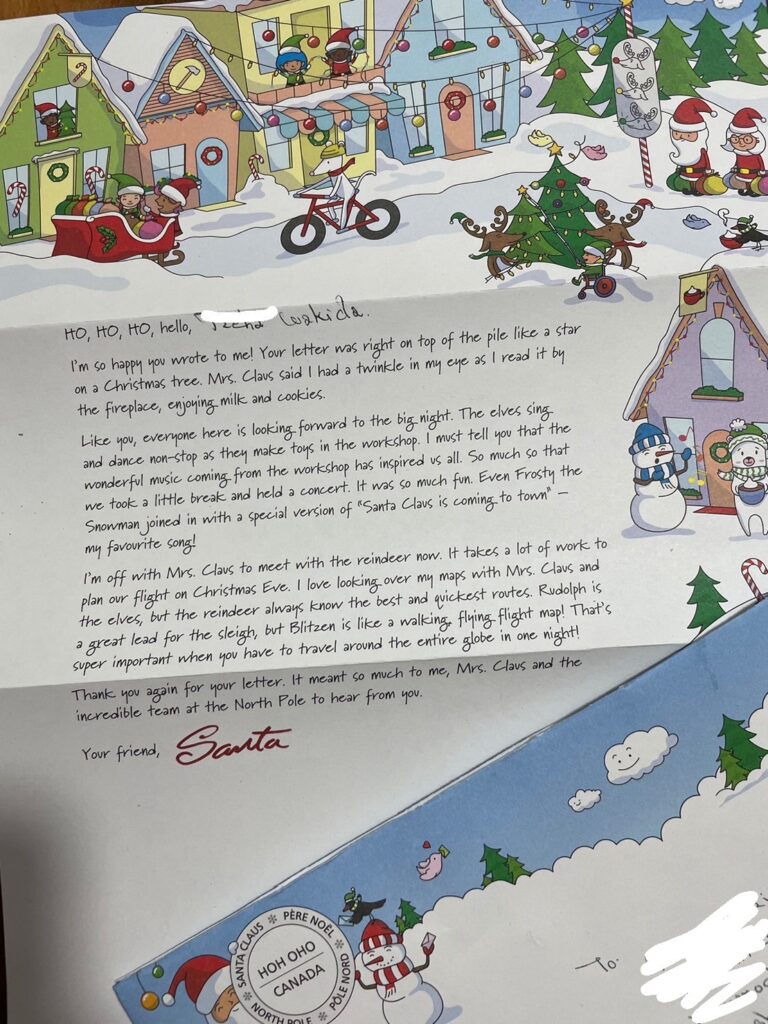 HO, HO, HO, hello,
I'm so happy you wrote to me! Your letter was right on top of the pile like a star
on a Christmas tree. Mrs. Claus said I had a twinkle in my eye as I read it by
the fireplace, enjoying milk and cookies.
Like you, everyone here is looking forward to the big night. The elves sing
and dance non-stop as they make toys in the workshop. I must tell you that the
wonderful music coming from the workshop has inspired us all. So much so that
we took a little break and held a concert. It was so much fun. Even Frosty the
Snowman joined in with a special version of "Santa Claus is coming to town" –
my favourite song!
I'm off with Mrs. Claus to meet with the reindeer now. It takes a lot of work to
plan our flight on Christmas Eve. I love looking over my maps with Mrs. Claus and
the elves, but the reindeer always know the best and quickest routes. Rudolph is
a great lead for the sleigh, but Blitzen is like a walking, flying flight map! That's
super important when you have to travel around the entire globe in one night!
Thank you again for your letter. It meant so much to me, Mrs. Claus and the
incredible team at the North Pole to hear from you.
Your friend, Santa
SANTA CLAUS ❄ PÈRE NOËL ❄
HOH OHO
CANADA
NORTH POLE ❄ PÔLE NORD
To.